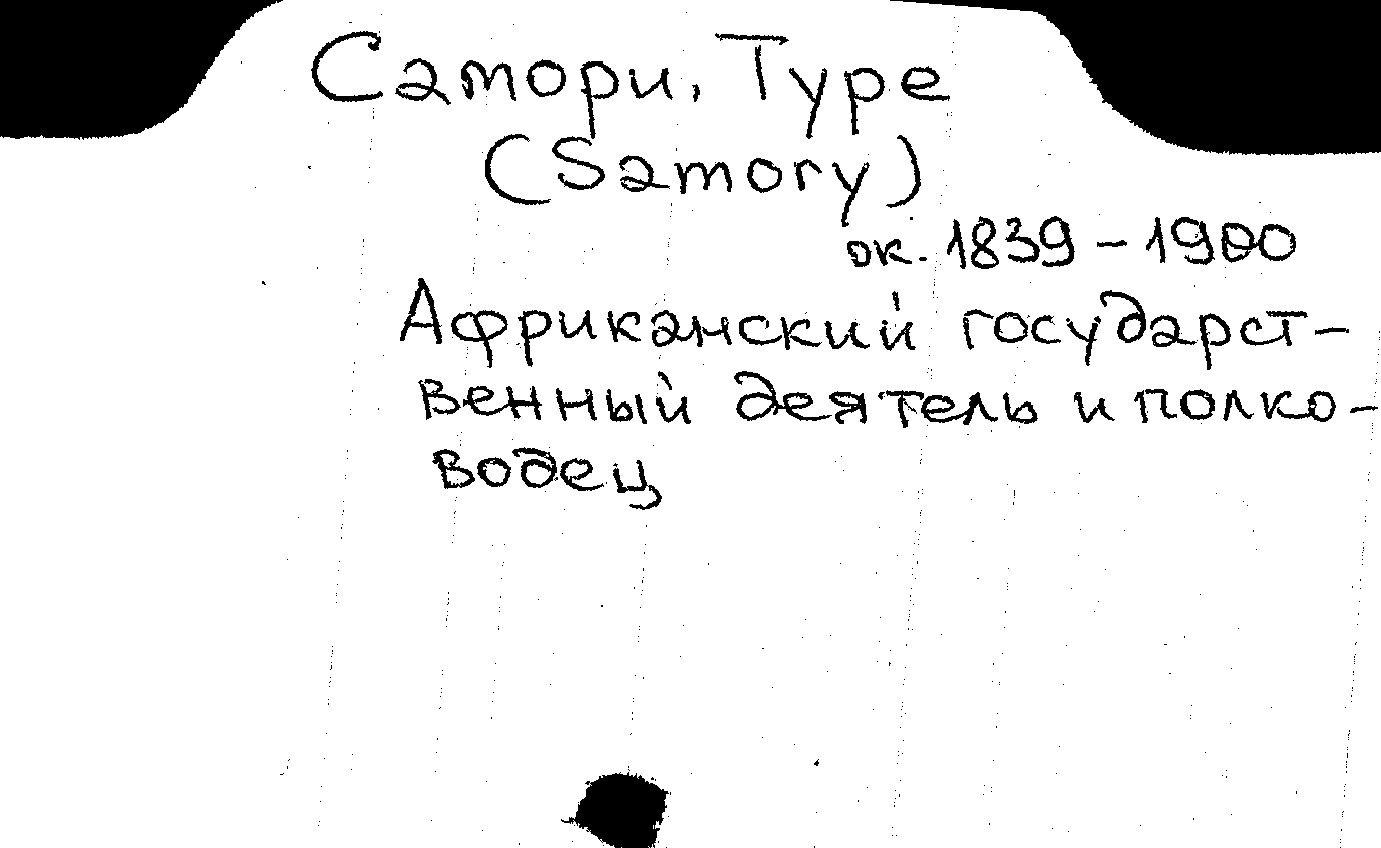 Самори, Туре
(Samory)
ок. 1839 – 1900
Африканский государст-
венный деятель и полко-
водец